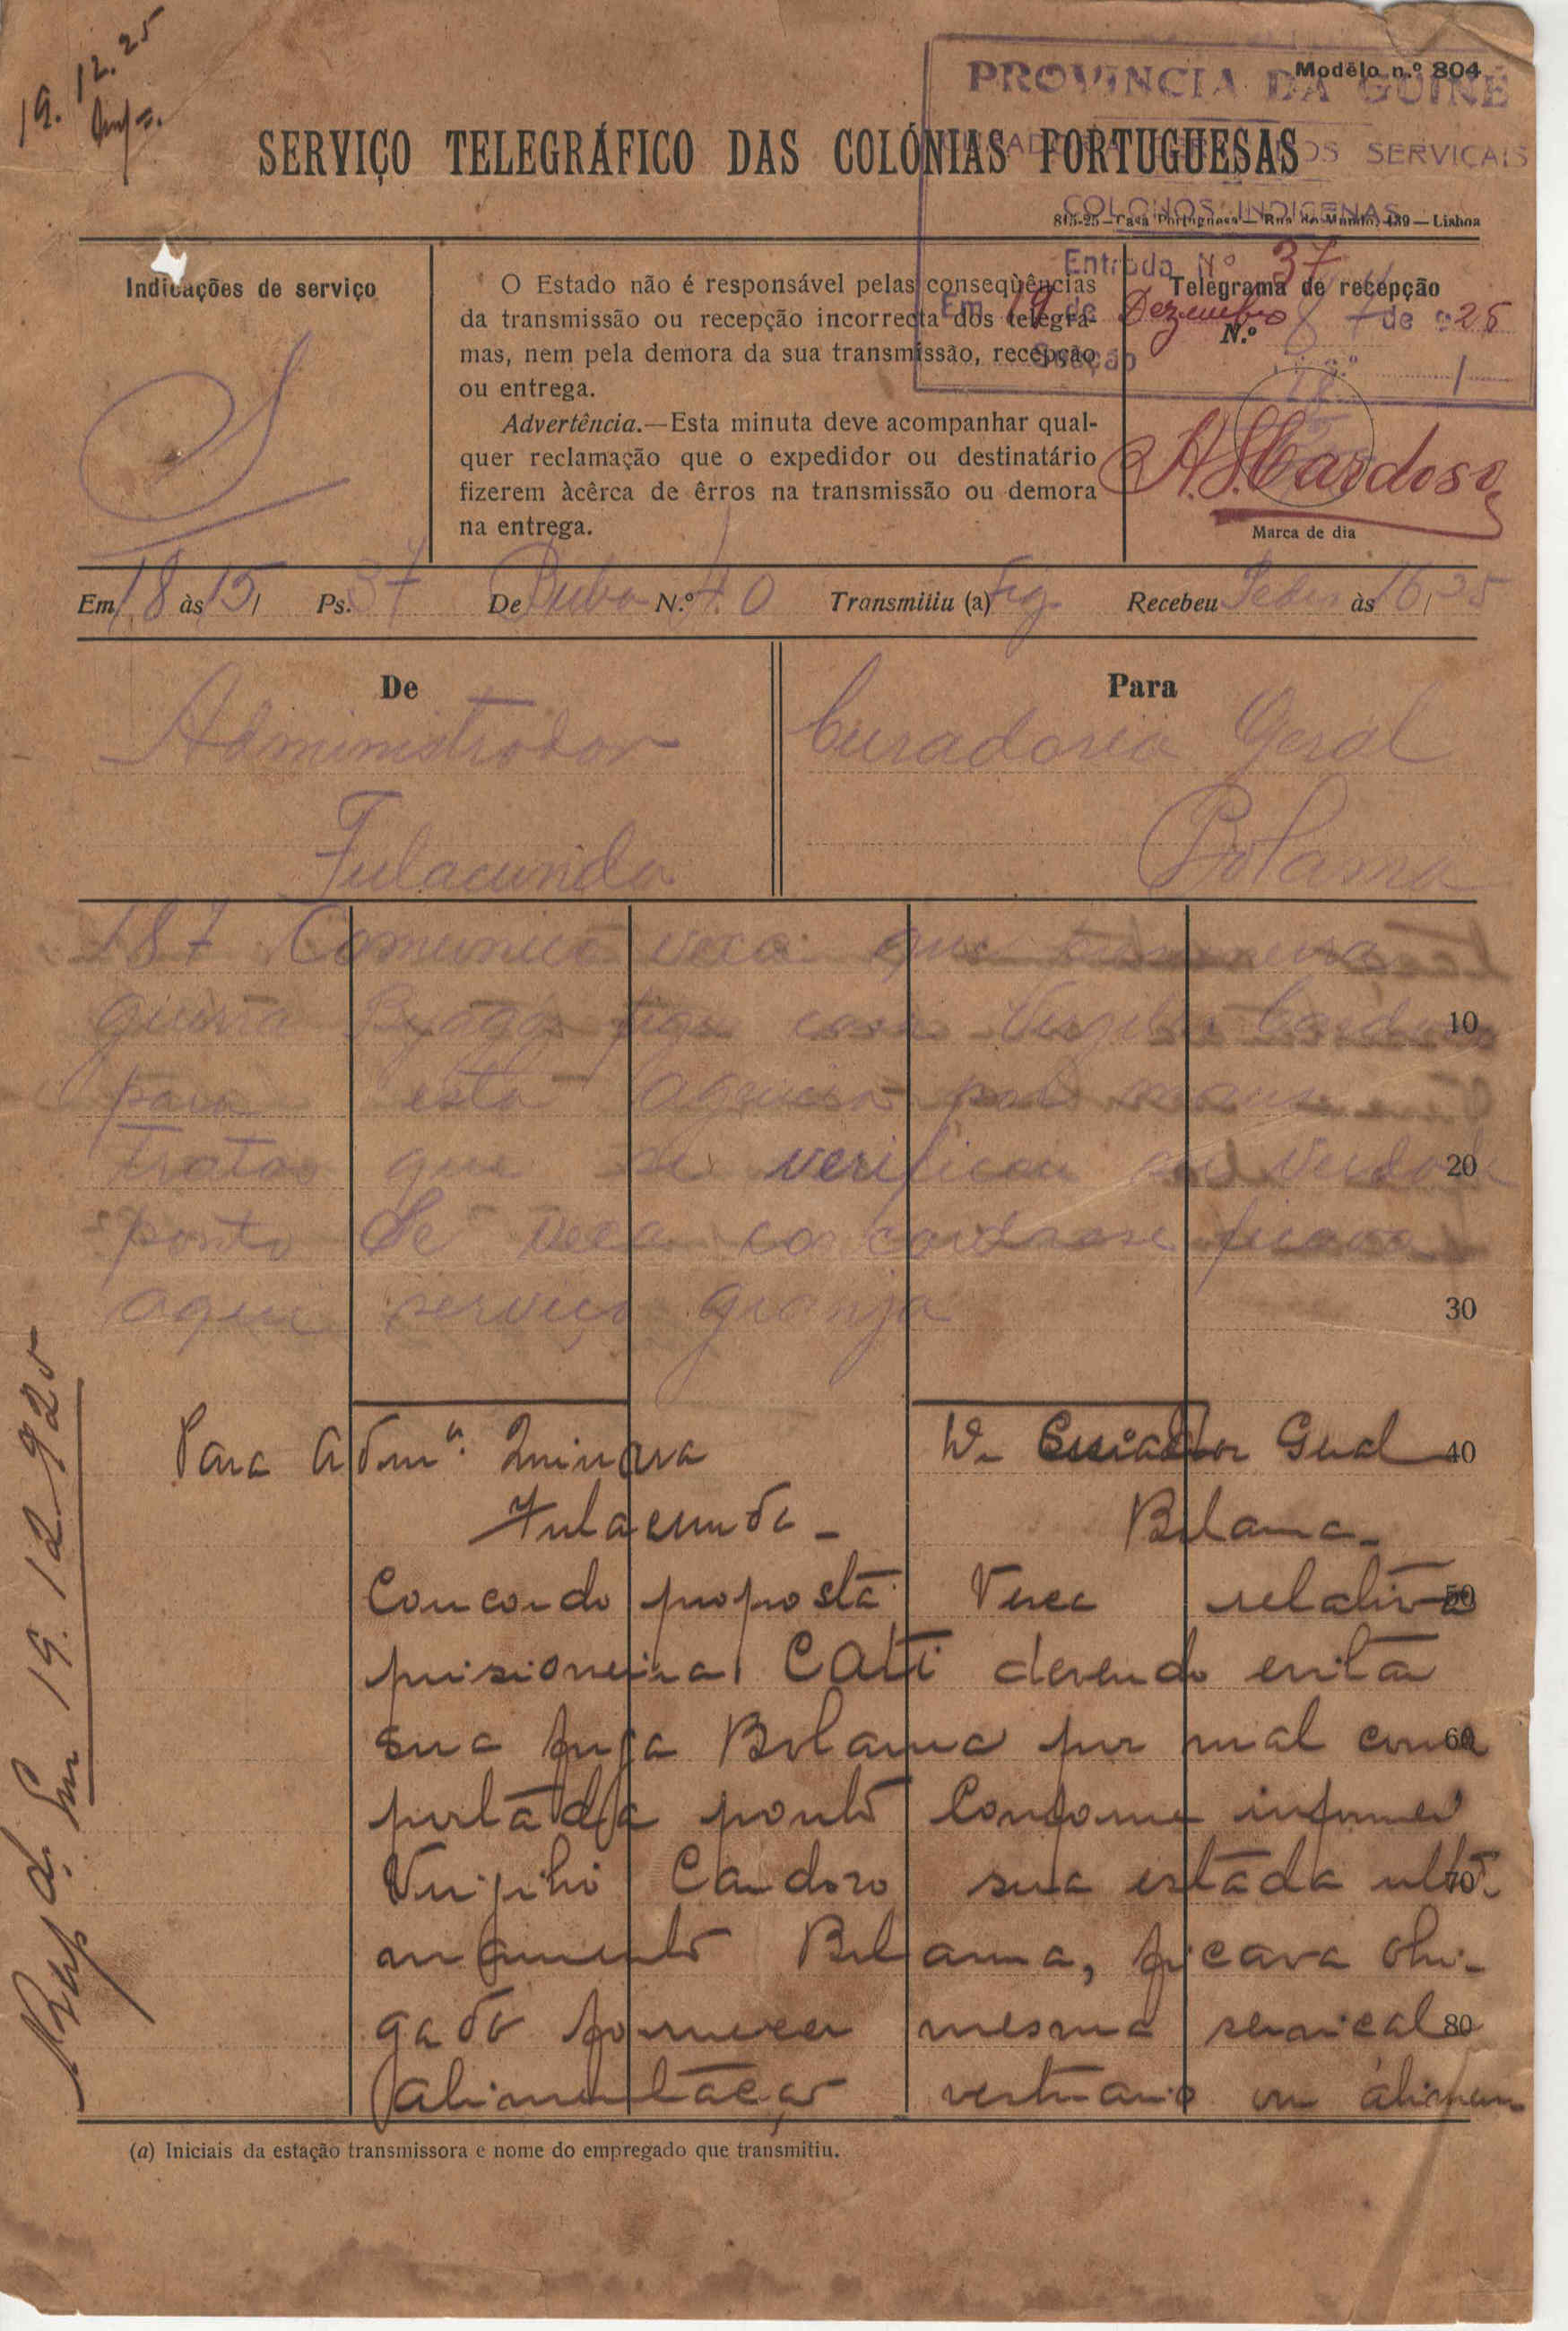 19.12.25
Modêlo n.º 804
PROVINCIA DA GUINÉ
SERVIÇO TELEGRÁFICO DAS COLÓNIAS PORTUGUESAS
OS SERVIÇAIS
COLONOS INDIGENAS
815-25—Casa Portuguesa—Rua do Mundo, 139—Lisboa
Entrada Nº 37
Em 19 de Dezembro de 925
Secção 1
Indicações de serviço
S
O Estado não é responsável pelas conseqùências
da transmissão ou recepção incorrecta dos telegra-
mas, nem pela demora da sua transmissão, recepção
ou entrega.
Advertência.—Esta minuta deve acompanhar qual-
quer reclamação que o expedidor ou destinatário
fizerem àcêrca de êrros na transmissão ou demora
na entrega.
Telegrama de recepção
N.º
A. S. Cardoso
Marca de dia
Em 18 às 15/ Ps. 37 De Buba N.º 40 Transmitiu (a) Fig Recebeu às 16,35
De
Administrador
Fulacunda
Para
Curadoria Geral
Bolama
187 Comunico vexa que
guerra fugiu casa Virgilio Cardoso
para esta por maus
tratos que se verificou ser verdade
ponto Se vexa concordasse ficava
aqui serviço granja
Para Admn. Quinara
Fulacunda -
De Curador Geral
Bolama -
Concordo proposta Vexa relativa
prisioneira CATI devendo evitar
sua fuga Bolama por mal com
portada ponto Conforme informei
Virgilio Cardoso sua estada ulti
mamente Bolama, ficava obri-
gado fornecer mesma serviçal
alimentação vestuario ou alimen
Resp. d. Em 19.12.925
10
20
30
40
50
60
70
80
(a) Iniciais da estação transmissora e nome do empregado que transmitiu.